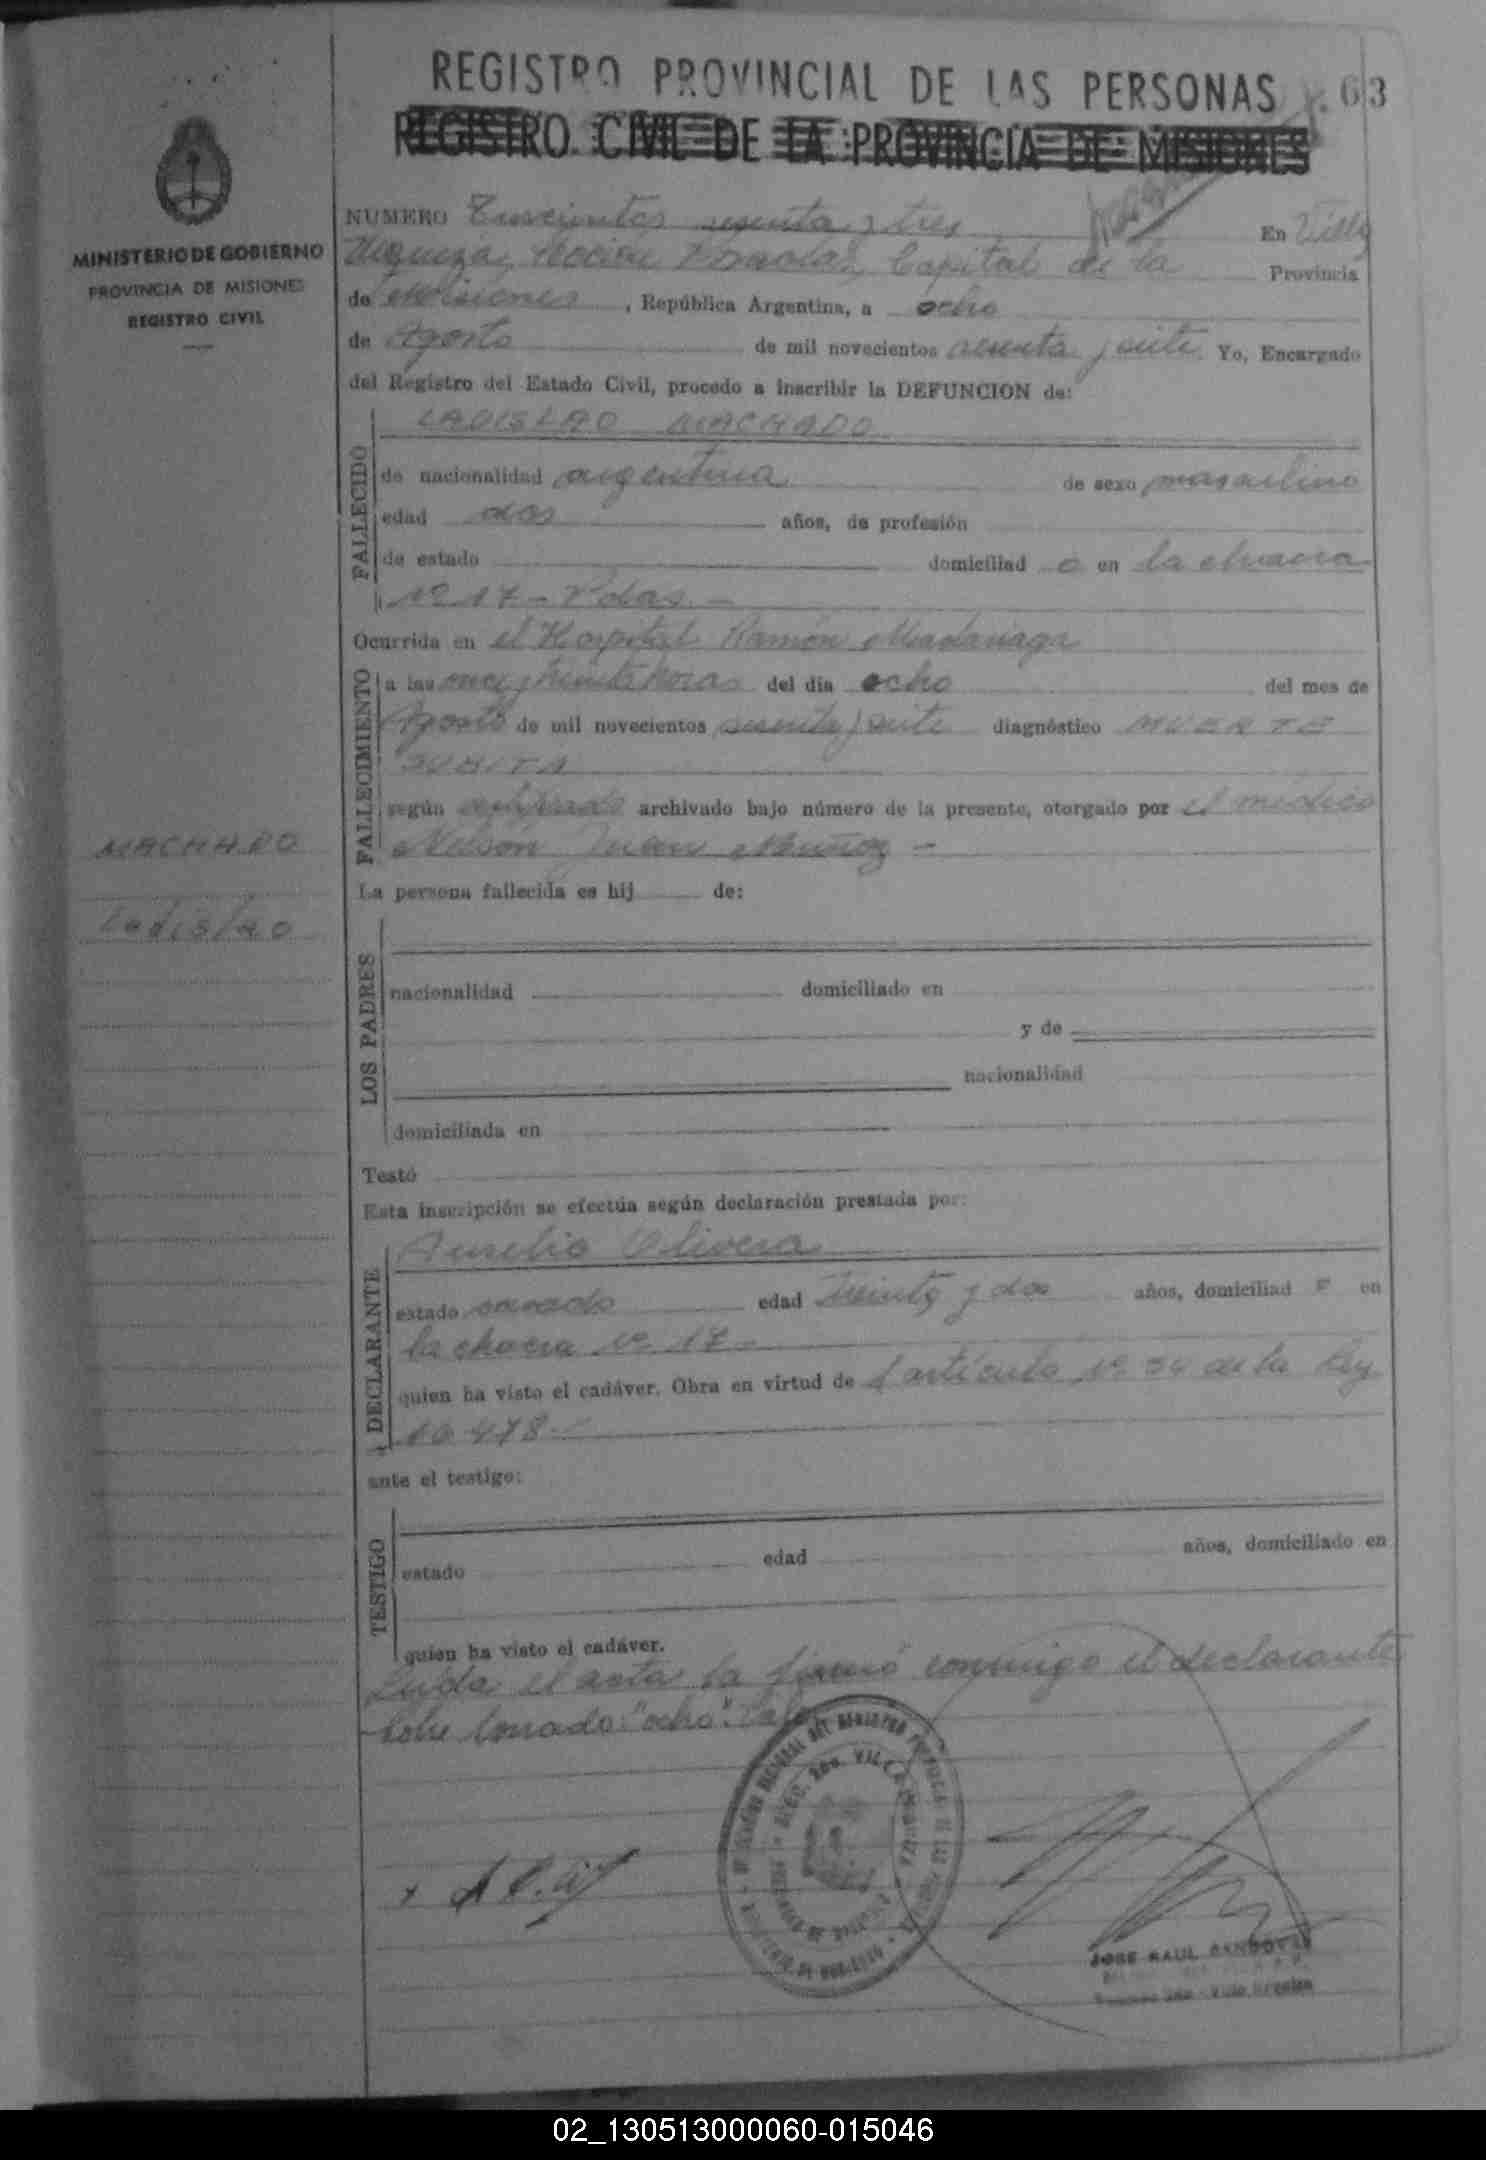 REGISTRO PROVINCIAL DE LAS PERSONAS
63
REGISTRO CIVIL DE LA PROVINCIA DE MISIONES
MINISTERIO DE GOBIERNO
PROVINCIA DE MISIONES
REGISTRO CIVIL
NUMERO sesenta y tres En Villa
Urquiza, Sección Posadas, Capital de la Provincia
de Misiones, República Argentina, a ocho
de Agosto de mil novecientos sesenta y siete Yo, Encargado
del Registro del Estado Civil, procedo a inscribir la DEFUNCION de:
FALLECIDO
LADISLAO MACHADO
de nacionalidad argentina de sexo masculino
edad dos años, de profesión
de estado domiciliad o en la chacra
Nº 17 - Pdas. -
Ocurrida en el Hospital Ramón Madariaga
FALLECIMIENTO
a las once y treinta horas del día ocho del mes de
Agosto de mil novecientos sesenta y siete diagnóstico MUERTE
SUBITA
según certificado archivado bajo número de la presente, otorgado por el médico
Nelson Juan Muñoz -
MACHADO
Ladislao
La persona fallecida es hij de:
LOS PADRES
nacionalidad domiciliado en
y de
nacionalidad
domiciliada en
Testó
Esta inscripción se efectúa según declaración prestada por:
DECLARANTE
Aurelio Olivera
estado casado edad treinta y dos años, domiciliad o en
la chacra Nº 17 -
quien ha visto el cadáver. Obra en virtud de l artículo Nº 34 de la Ley
ante el testigo:
TESTIGO
estado edad años, domiciliado en
quien ha visto el cadáver.
Leida el acta la firmó conmigo el declarante
Sobre borrado: "ocho". Vale
JOSE RAUL SANDOVAL
Villa Urquiza
02_130513000060-015046